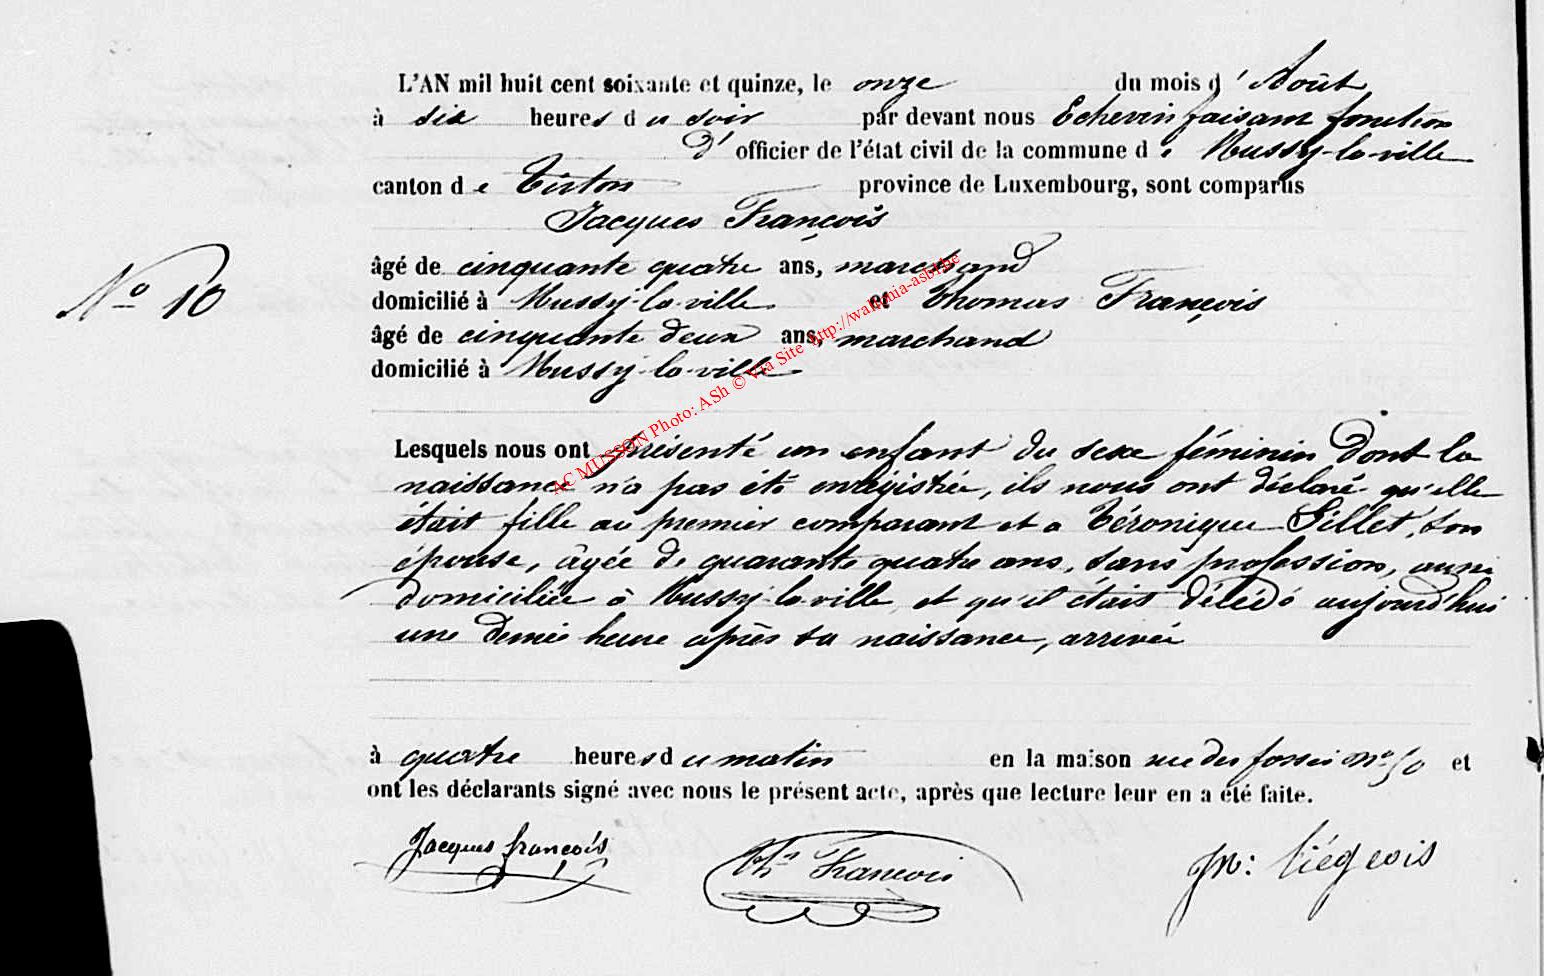 L'AN mil huit cent soixante et quinze, le onze du mois d'Août
à six heures du soir par devant nous Echevin faisant fonction
d'officier de l'état civil de la commune de Mussy-la-ville
canton de Virton province de Luxembourg, sont comparus
Jacques François
âgé de cinquante quatre ans, marchand
N° 10 domicilié à Mussy-la-ville et Thomas François
âgé de cinquante deux ans, marchand
domicilié à Mussy-la-ville
Lesquels nous ont présenté un enfant du sexe féminin dont la
naissance n'a pas été enregistrée, ils nous ont déclaré qu'elle
était fille au premier comparant et a Véronique Gillet, son
épouse, âgée de quarante quatre ans, sans profession, aussi
domiciliée à Mussy-la-ville, et qu'il était décédé aujourd'hui
une demie heure après sa naissance, arrivée
à quatre heures du matin en la maison rue des fossés n° 50 et
ont les déclarants signé avec nous le présent acte, après que lecture leur en a été faite.
Jacques françois Ths François JN: Liégeois
AC MUSSON Photo: ASh © Via Site http://wallonia-asbl.be